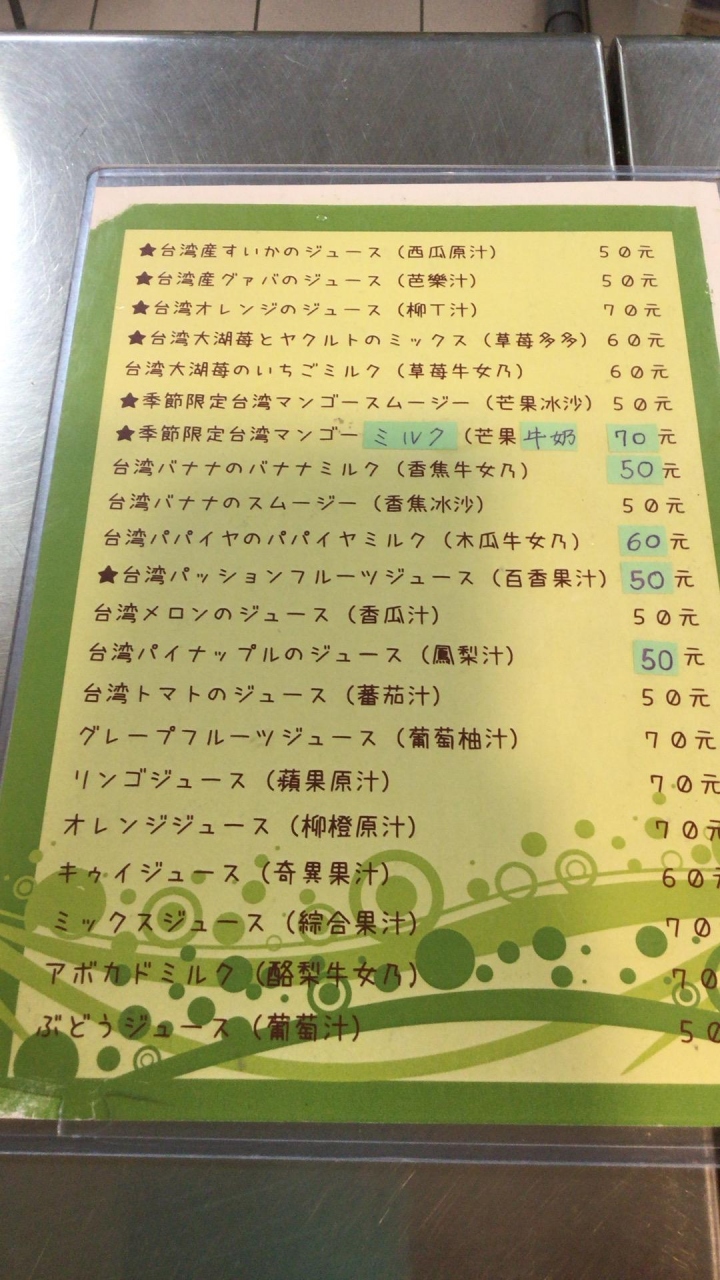 ★台湾産すいかのジュース（西瓜原汁） 50元
★台湾産グァバのジュース（芭樂汁） 50元
★台湾オレンジのジュース（柳丁汁） 70元
★台湾大湖苺とヤクルトのミックス（草苺多多） 60元
台湾大湖苺のいちごミルク（草苺牛女乃） 60元
★季節限定台湾マンゴースムージー（芒果冰沙） 50元
★季節限定台湾マンゴーミルク（芒果牛奶 70元
台湾バナナのバナナミルク（香焦牛女乃） 50元
台湾バナナのスムージー（香焦冰沙） 50元
台湾パパイヤのパパイヤミルク（木瓜牛女乃） 60元
★台湾パッションフルーツジュース（百香果汁） 50元
台湾メロンのジュース（香瓜汁） 50元
台湾パイナップルのジュース（鳳梨汁） 50元
台湾トマトのジュース（蕃茄汁） 50元
グレープフルーツジュース（葡萄柚汁） 70元
リンゴジュース（蘋果原汁） 70元
オレンジジュース（柳橙原汁） 70元
キゥイジュース（奇異果汁） 60元
ミックスジュース（綜合果汁） 70
アボカドミルク（酪梨牛女乃） 70
ぶどうジュース（葡萄汁） 50